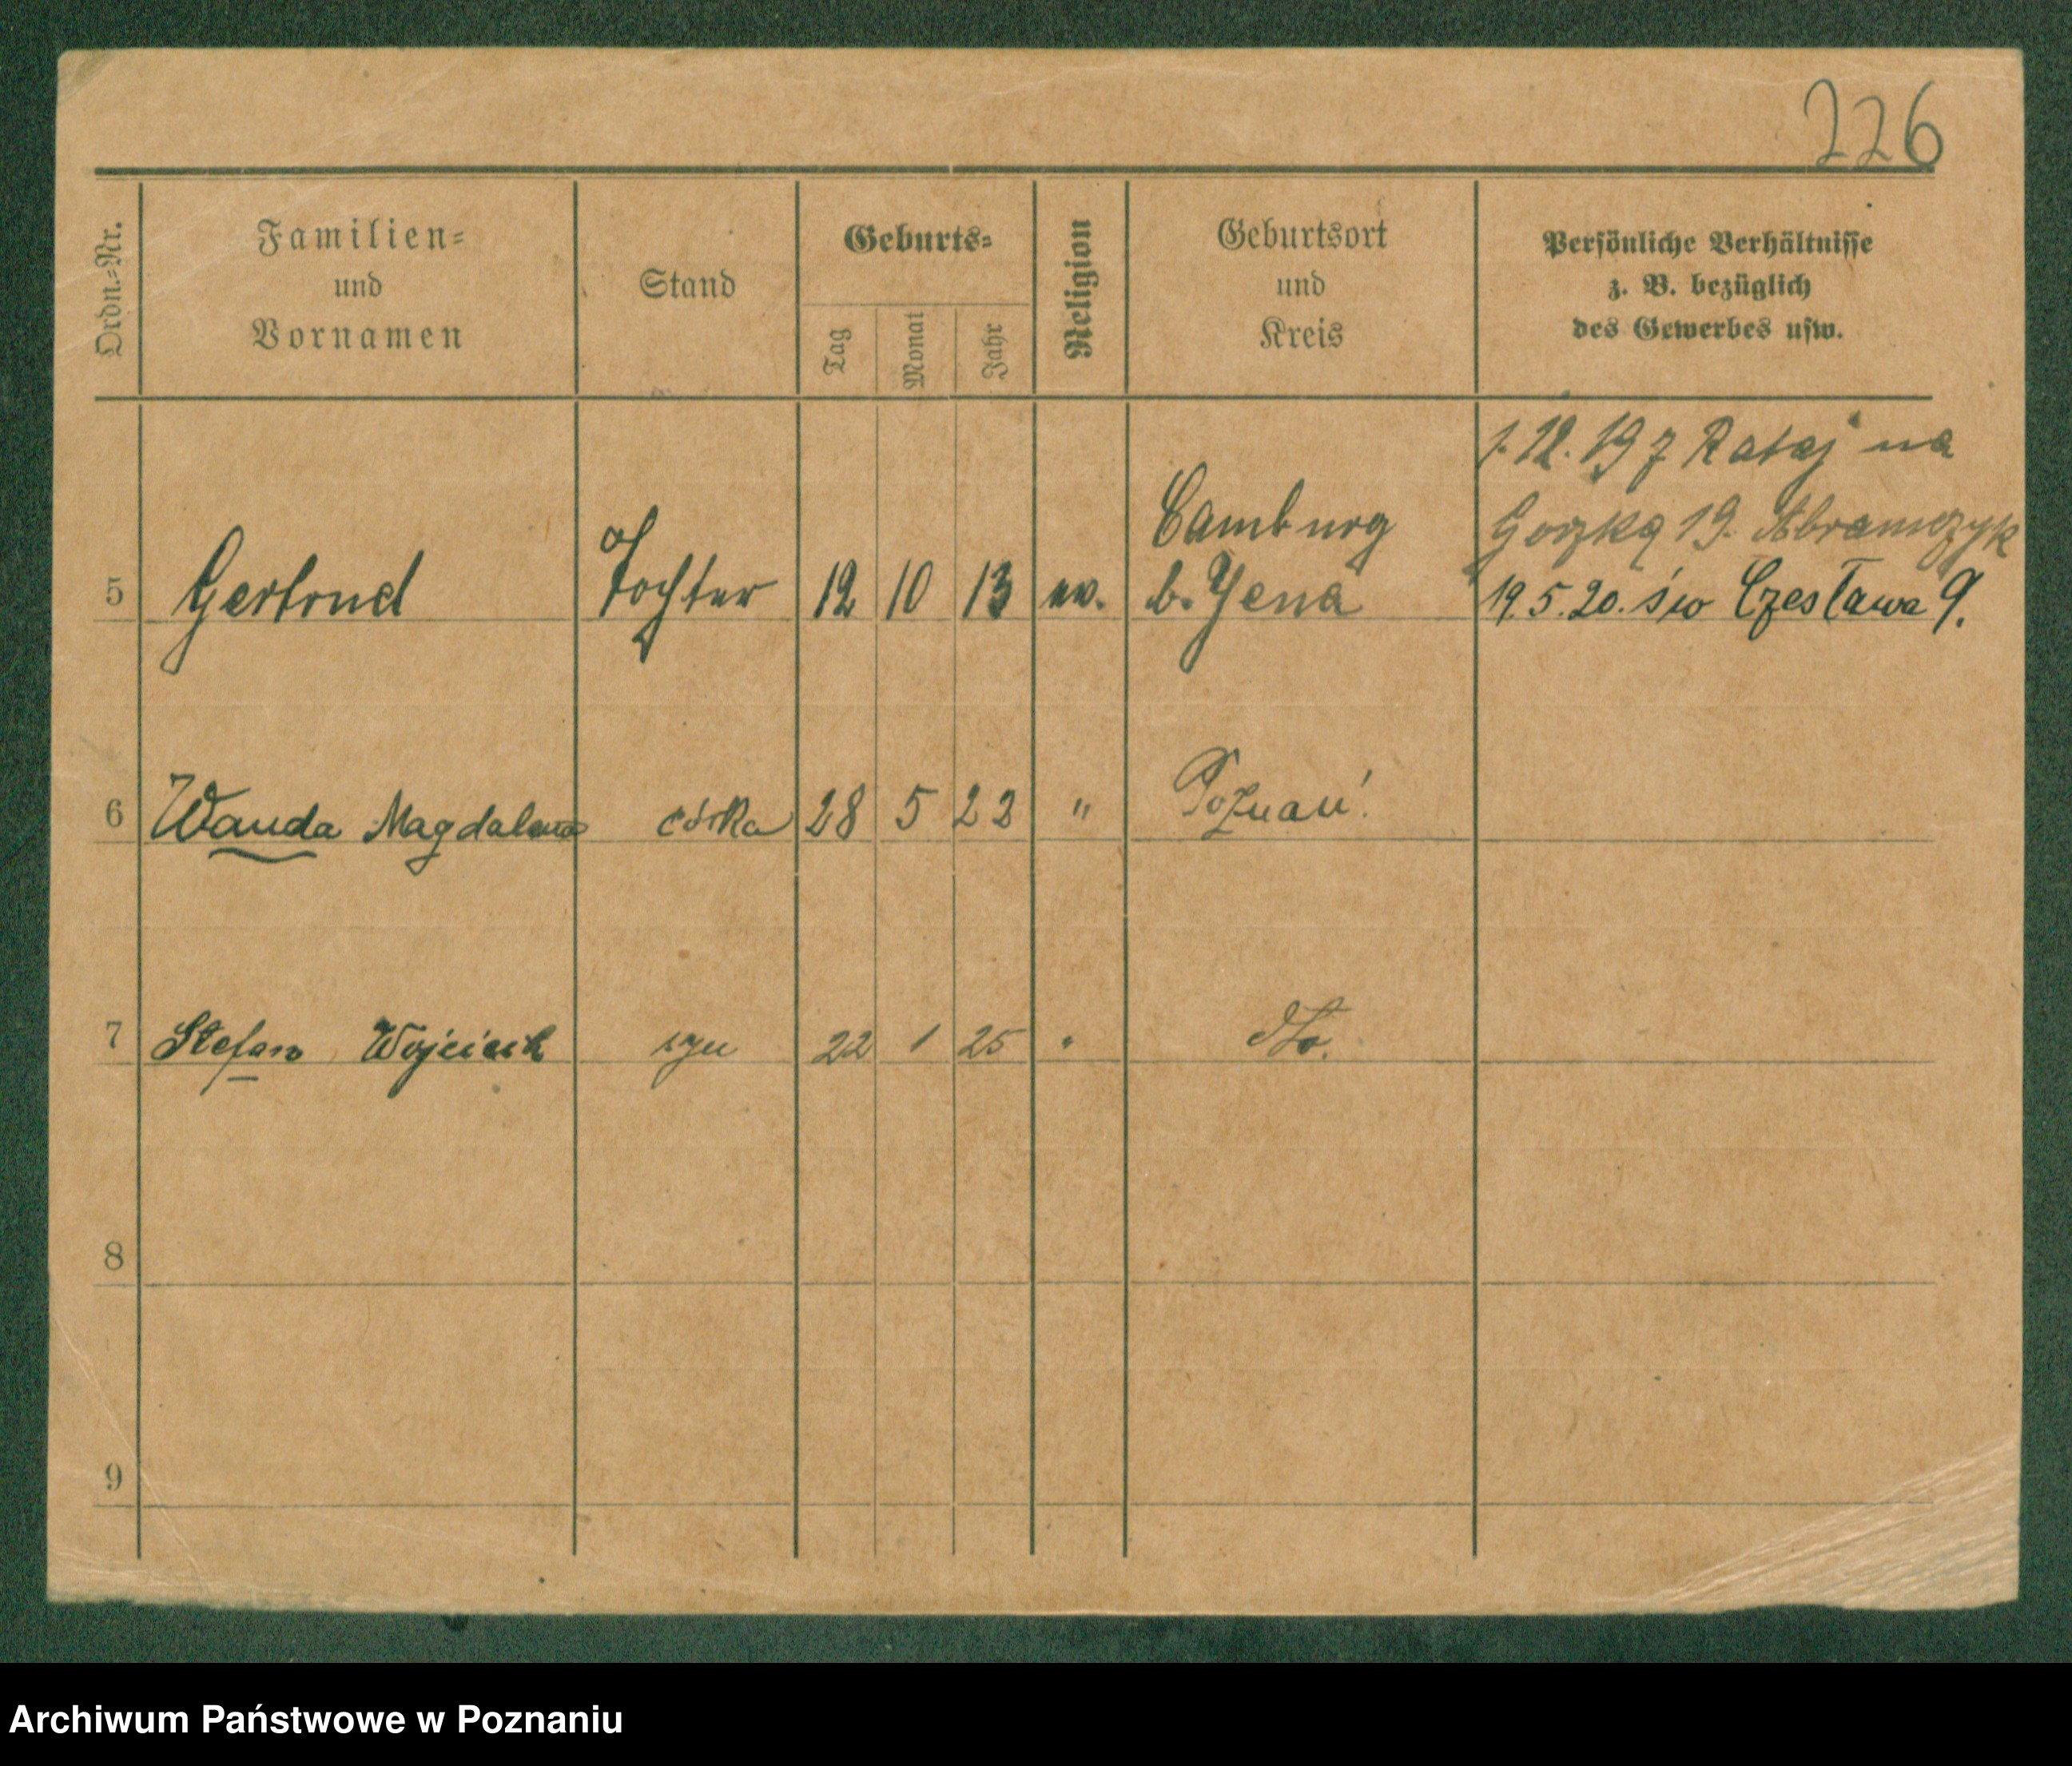 226
Ordn.-Nr.
Familien-
und
Vornamen
Stand
Geburts-
Tag
Monat
Jahr
Religion
Geburtsort
und
Kreis
Persönliche Verhältnisse
z. B. bezüglich
des Gewerbes usw.
1.12.19 z Rataj na
Gorzką 19. Abramczyk
5 Gertrud Tochter 12 10 13 ev. Camburg
b. Jena
19.5.20. św Czesława 9.
6 Wanda Magdalena córka 28 5 22 " Poznań.
7 Stefan Wojciech syn 22 1 25 " dto.
8
9
Archiwum Państwowe w Poznaniu